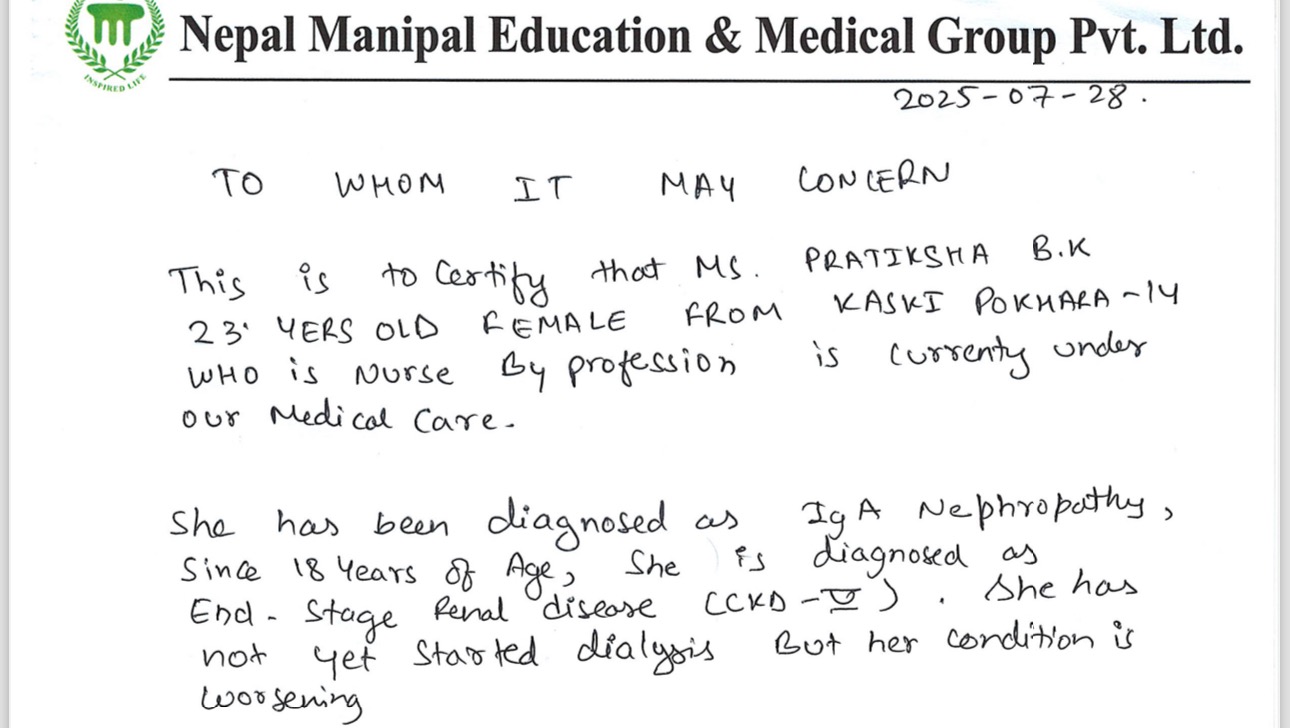 INSPIRED LIFE
Nepal Manipal Education & Medical Group Pvt. Ltd.
2025-07-28.
TO WHOM IT MAY CONCERN
This is to Certify that MS. PRATIKSHA B.K
23 YERS OLD FEMALE FROM KASKI POKHARA-14
WHO is Nurse By profession is currenty under
our Medical Care.
She has been diagnosed as IgA Nephropathy,
Since 18 Years of Age, She is diagnosed as
End-Stage Renal disease (CKD-V). She has
not yet started dialysis But her condition is
worsening